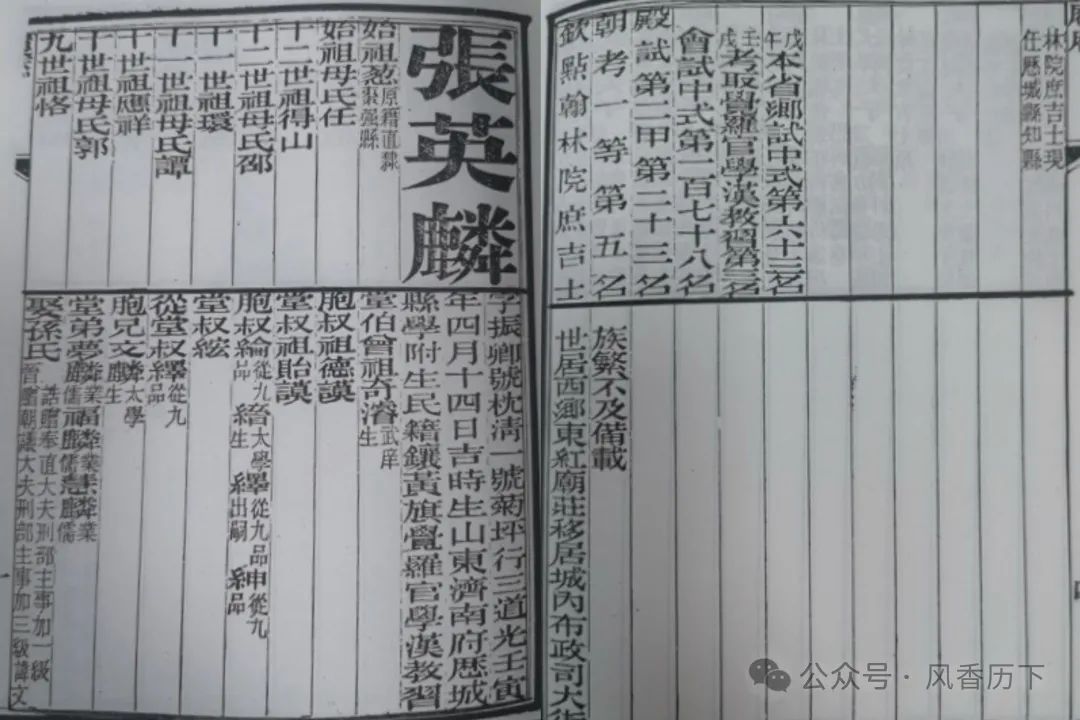 張英麟
始祖葱原籍直隸棗強縣
始祖母氏任
十二世祖得山
十二世祖母氏邵
十一世祖環
十一世祖母氏譚
十世祖應祥
十世祖母氏郭
九世祖恪
字振卿號枕清一號菊坪行三道光壬寅
年四月十四日吉時生山東濟南府歷城
縣學附生民籍鑲黃旗覺羅官學漢教習
堂伯曾祖奇濬武庠生
胞叔祖德謨
堂叔祖貽謨
胞叔綸從九品 太學生 繹從九品 出嗣 紳從九品
堂叔紘
從堂叔繹從九品
胞兄文麟太學生
堂弟夢麟業儒福麟業儒慧麟業儒
娶孫氏誥贈奉直大夫刑部主事加一級晉贈朝議大夫刑部主事加三級諱文
林院庶吉士現
任歷城縣知縣
戊午本省鄉試中式第六十三名
壬戌考取覺羅官學漢教習第三名
會試中式第一百七十八名
殿試第二甲第二十三名
朝考一等第五名
欽點翰林院庶吉士
族繁不及備載
世居西鄉東紅廟莊移居城內布政司大街
公众号·风香历下